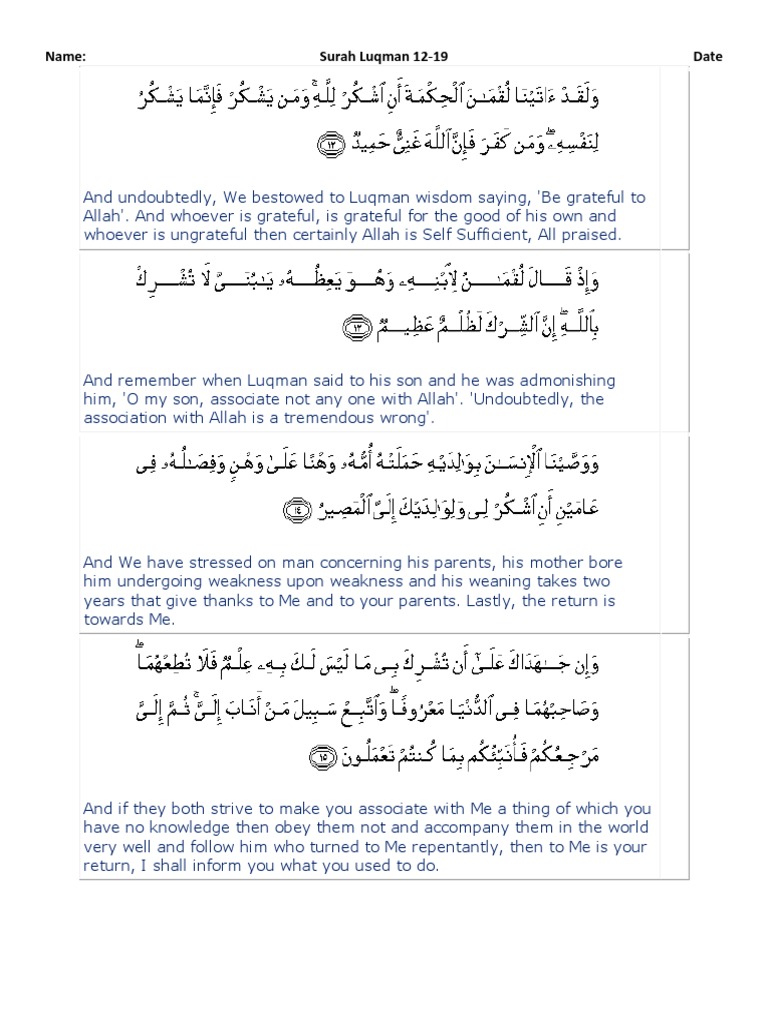 Name: Surah Luqman 12-19 Date
وَلَقَدْ ءَاتَيْنَا لُقْمَـٰنَ ٱلْحِكْمَةَ أَنِ ٱشْكُرْ لِلَّهِ ۚ وَمَن يَشْكُرْ فَإِنَّمَا يَشْكُرُ
لِنَفْسِهِۦ ۖ وَمَن كَفَرَ فَإِنَّ ٱللَّهَ غَنِىٌّ حَمِيدٌ ﴿١٢﴾
And undoubtedly, We bestowed to Luqman wisdom saying, 'Be grateful to
Allah'. And whoever is grateful, is grateful for the good of his own and
whoever is ungrateful then certainly Allah is Self Sufficient, All praised.
وَإِذْ قَالَ لُقْمَـٰنُ لِٱبْنِهِۦ وَهُوَ يَعِظُهُۥ يَـٰبُنَىَّ لَا تُشْرِكْ
بِٱللَّهِ ۖ إِنَّ ٱلشِّرْكَ لَظُلْمٌ عَظِيمٌ ﴿١٣﴾
And remember when Luqman said to his son and he was admonishing
him, 'O my son, associate not any one with Allah'. 'Undoubtedly, the
association with Allah is a tremendous wrong'.
وَوَصَّيْنَا ٱلْإِنسَـٰنَ بِوَٰلِدَيْهِ حَمَلَتْهُ أُمُّهُۥ وَهْنًا عَلَىٰ وَهْنٍ وَفِصَـٰلُهُۥ فِى
عَامَيْنِ أَنِ ٱشْكُرْ لِى وَلِوَٰلِدَيْكَ إِلَىَّ ٱلْمَصِيرُ ﴿١٤﴾
And We have stressed on man concerning his parents, his mother bore
him undergoing weakness upon weakness and his weaning takes two
years that give thanks to Me and to your parents. Lastly, the return is
towards Me.
وَإِن جَـٰهَدَاكَ عَلَىٰٓ أَن تُشْرِكَ بِى مَا لَيْسَ لَكَ بِهِۦ عِلْمٌ فَلَا تُطِعْهُمَا ۖ
وَصَاحِبْهُمَا فِى ٱلدُّنْيَا مَعْرُوفًا ۖ وَٱتَّبِعْ سَبِيلَ مَنْ أَنَابَ إِلَىَّ ۚ ثُمَّ إِلَىَّ
مَرْجِعُكُمْ فَأُنَبِّئُكُم بِمَا كُنتُمْ تَعْمَلُونَ ﴿١٥﴾
And if they both strive to make you associate with Me a thing of which you
have no knowledge then obey them not and accompany them in the world
very well and follow him who turned to Me repentantly, then to Me is your
return, I shall inform you what you used to do.